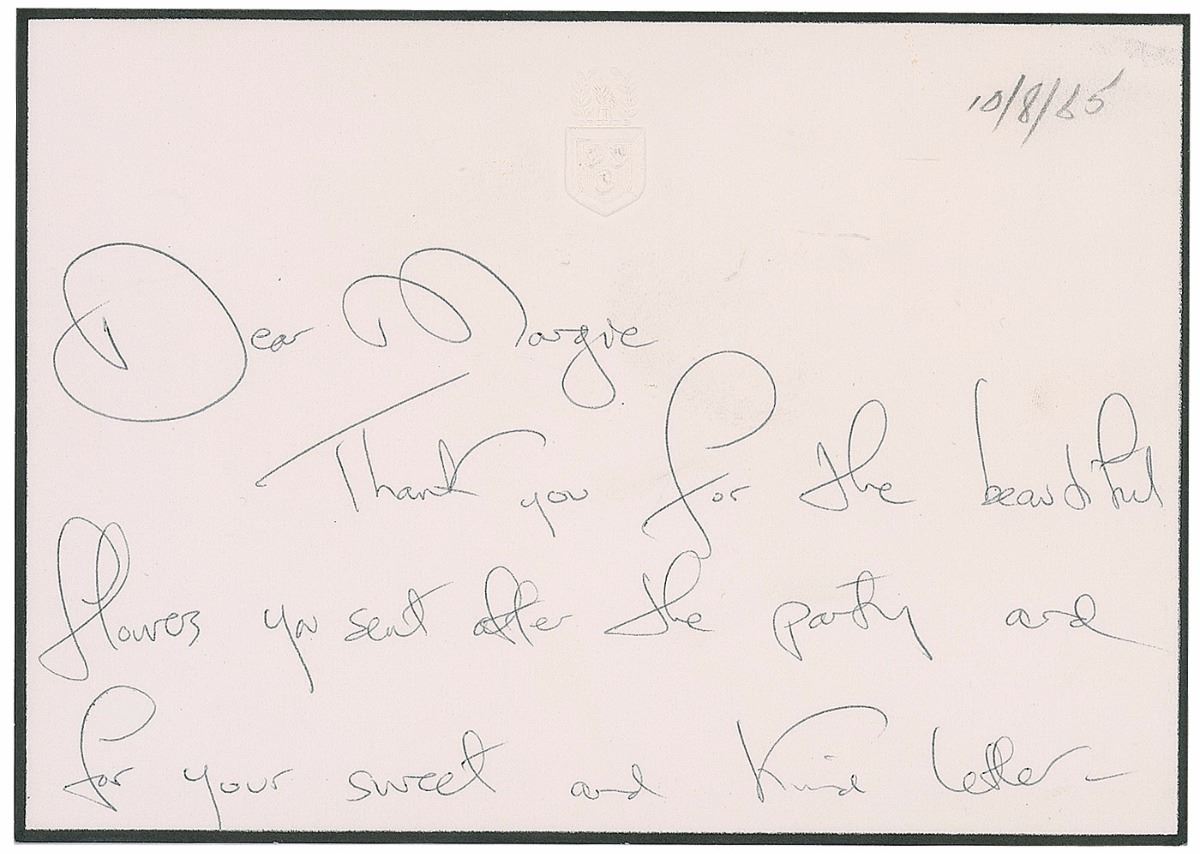 10/8/65
Dear Margie
Thank you for the beautiful
flowers you sent after the party and
for your sweet and kind letter –